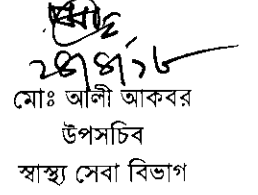 মোঃ আলী আকবর
উপসচিব
স্বাস্থ্য সেবা বিভাগ